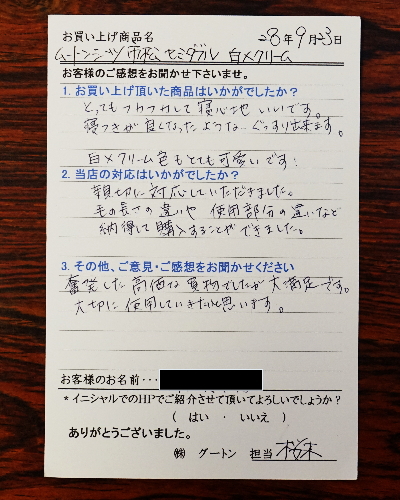 お買い上げ商品名
28年9月23日
ムートンシーツ 市松 セミダブル 白×クリーム
お客様のご感想をお聞かせ下さいませ。
1. お買い上げ頂いた商品はいかがでしたか?
とってもフワフワして寝心地いいです。
寝つきが良くなったような…ぐっすり出来ます。
白×クリーム色もとても可愛いです!
2. 当店の対応はいかがでしたか?
親切に対応していただきました。
毛の長さの違いや 使用部分の違いなど
納得して購入することができました。
3. その他、ご意見・ご感想をお聞かせください
奮発した高価な買物でしたが大満足です。
大切に使用していきたいと思います。
お客様のお名前・・・
*イニシャルでのHPでご紹介させて頂いてよろしいでしょうか?
( はい ・ いいえ )
ありがとうございました。
㈱ グートン 担当